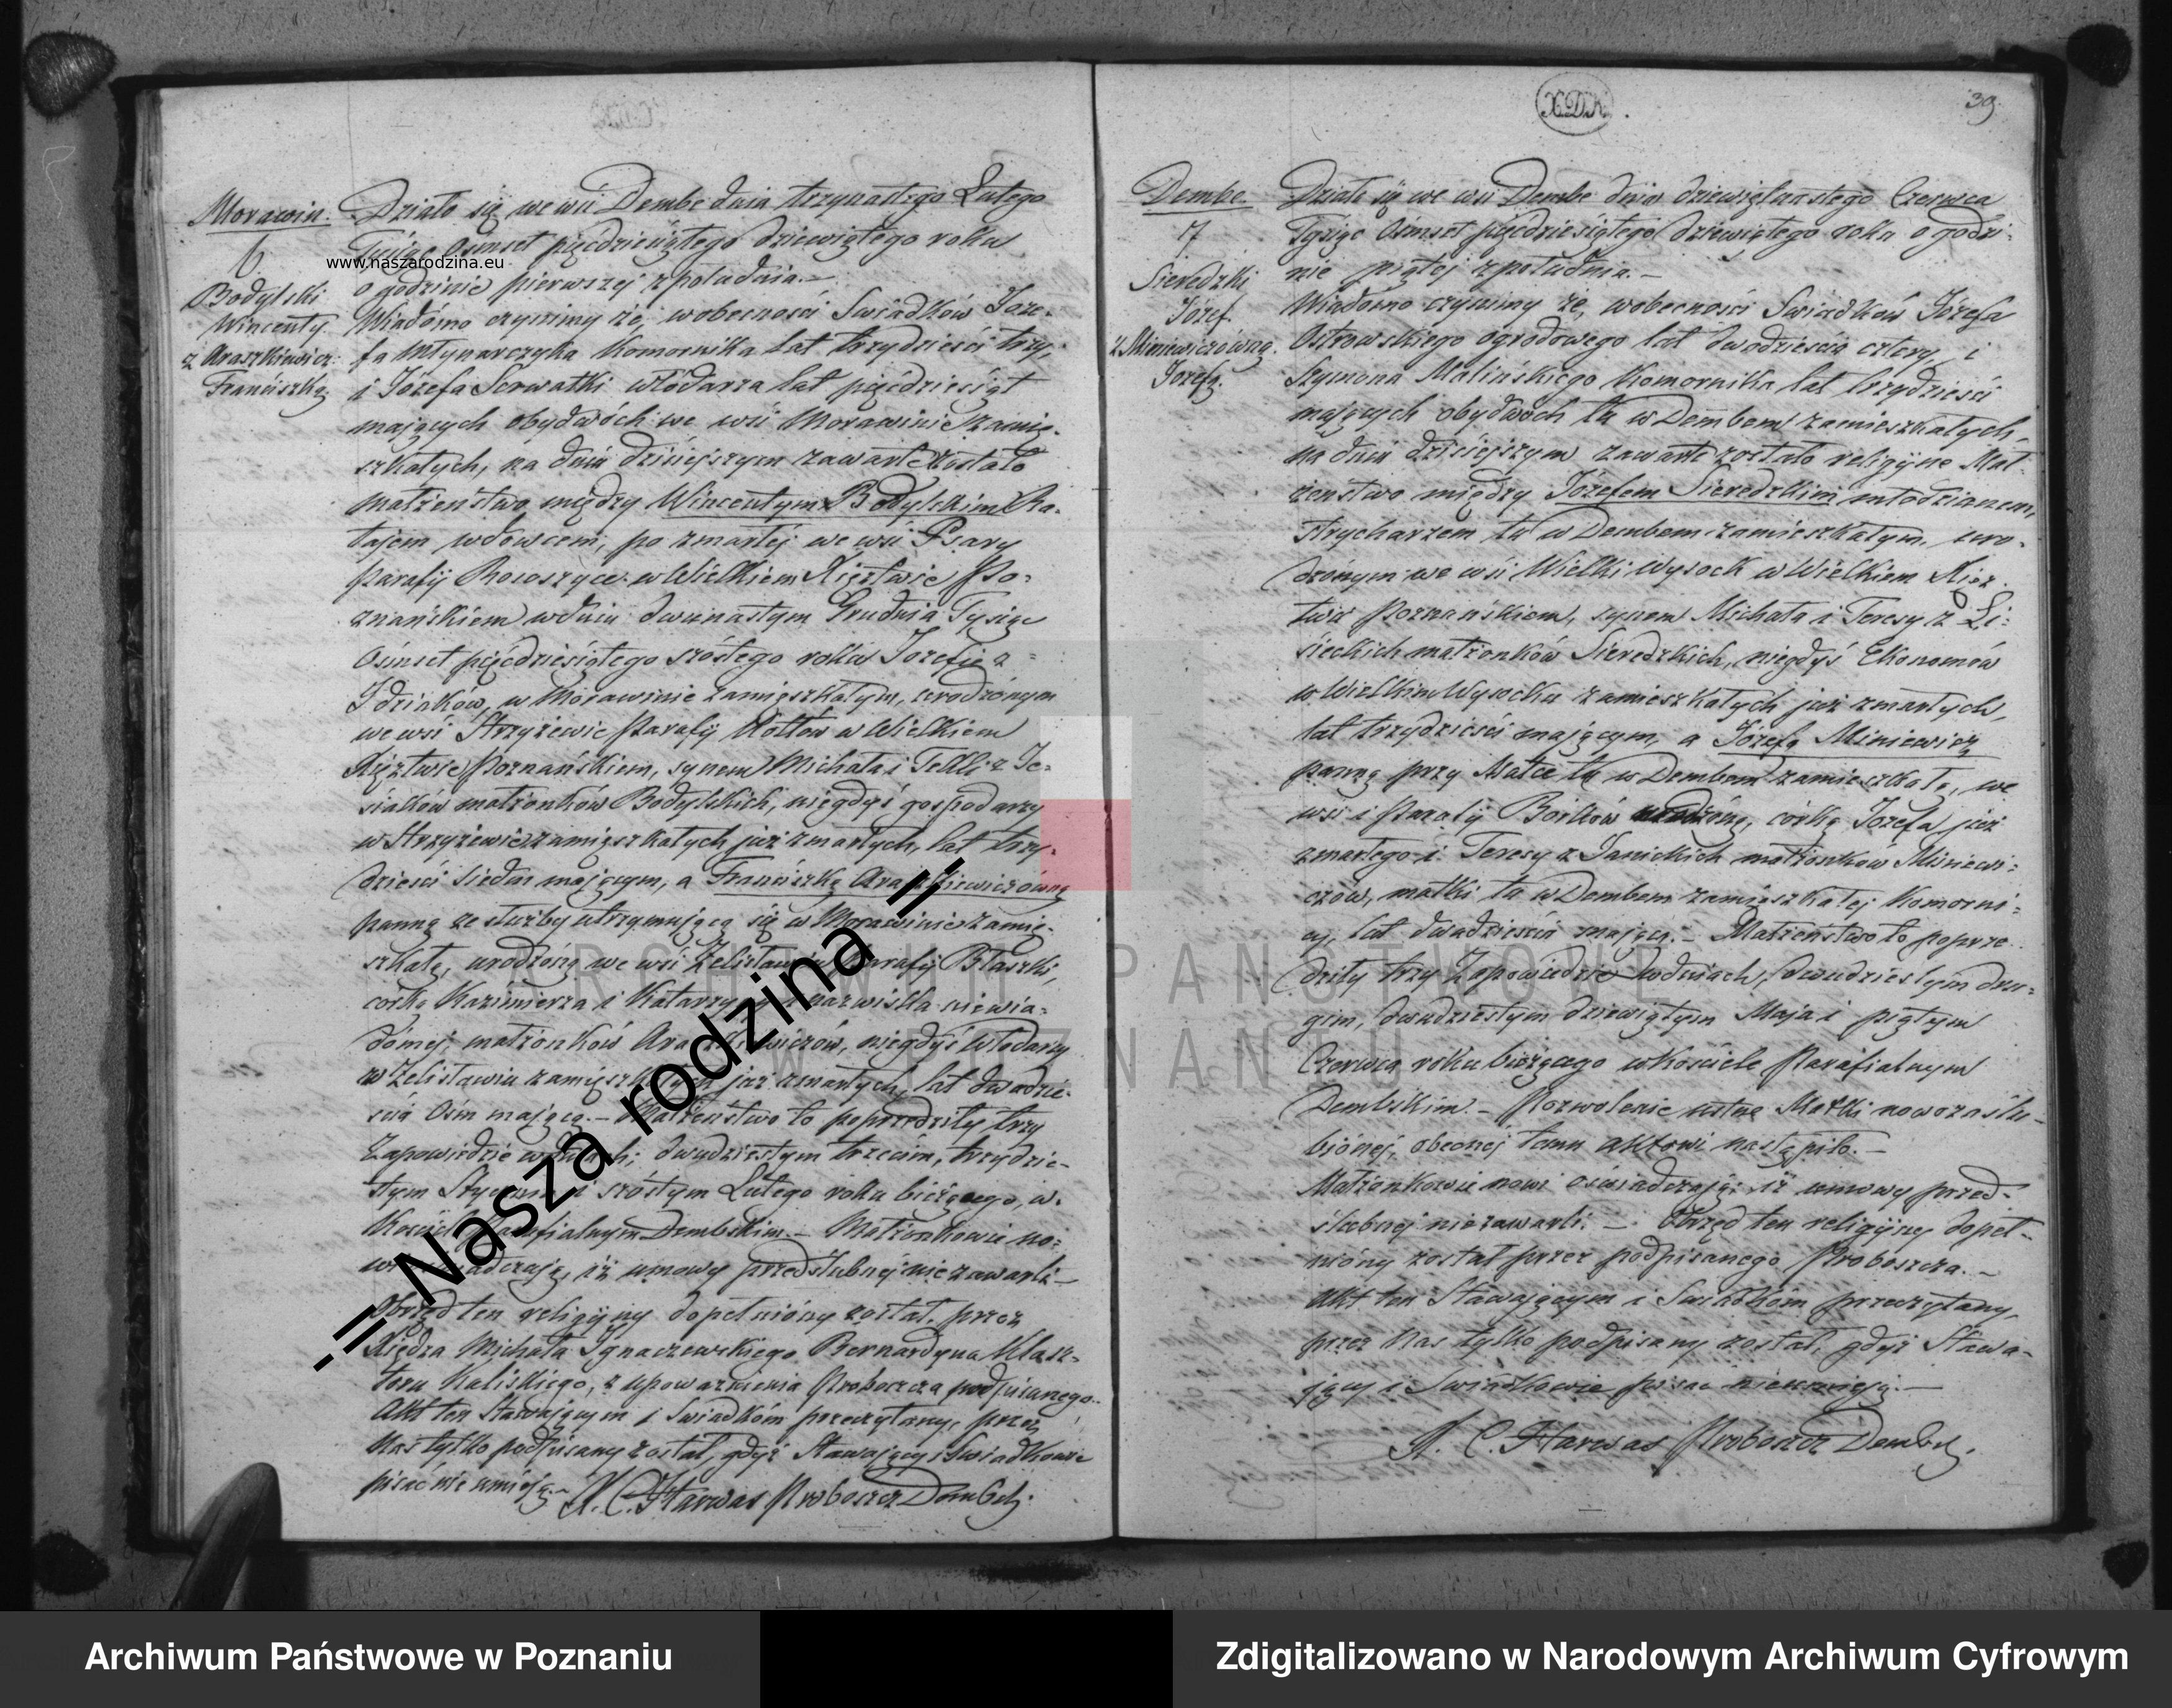 Morawin.
6
Bodylski
Wincenty
z Araszkiewicz:
Franciszką
Działo się we wsi Dembe dnia trzynastego Lutego
Tysiąc Ośmset pięćdziesiątego dziewiątego roku
www.naszarodzina.eu
o godzinie pierwszej z południa.—
Wiadomo czynimy że, w obecności Swiadków Józe-
fa Młynarczyka Komornika lat trzydzieści trzy,
i Józefa Serwatki włodarza lat pięćdziesiąt
mających obydwóch we wsi Morawinie zamię-
szkałych, na dniu dzisiejszym zawarte zostało
małżeństwo między Wincentym Bodylskim Ra-
tajem wdowcem, po zmarłej we wsi Psary
Parafij Rososzyca w Wielkiem Xięztwie Po-
znańskiem w dniu dwunastym Grudnia Tysiąc
Ośmset pięćdziesiątego szóstego roku Jozefie z
Idziaków, w Morawinie zamięszkałym, urodzonym
we wsi Strzyżewie Parafij Kotłów w Wielkiem
Xięztwie Poznańskiem, synem Michała i Tekli z Je-
siaków małżonków Bodylskich, niegdyś gospodarzy
w Strzyżewie zamięszkałych już zmarłych, lat trzy-
dzieści siedm mającym, a Franciszką Araszkiewiczówną
panną ze służby utrzymującą się w Morawinie zamię-
szkałą, urodzoną we wsi Zelisławiu Parafij Błaszki,
córką Kazimierza i Katarzyny z nazwiska niewia-
domej, małżonków Araszkiewiczów, niegdyś Włodarzy
w Zelisławiu zamięszkałych już zmarłych, lat dwadzie-
ścia ośm mającą.— Małżeństwo to poprzedziły trzy
Zapowiedzie w dniach; dwudziestym trzecim, trzydzie-
stym Stycznia i szóstym Lutego roku bieżącego, w
Kościele Parafialnym Dembskim.— Małżonkowie no-
wi oświadczają, iż umowy przedślubnej nie zawarli—
Obrzęd ten religijny dopełniony został, przez
Xiędza Michała Ignaczewskiego Bernardyna Klasz-
toru Kaliskiego, z upoważnienia Proboszcza podpisanego.
Akt ten Stawającym i Swiadkom przeczytany, przez
Nas tylko podpisany został, gdyż Stawający i Swiadkowie
pisać nie umieją.— X. C. Harwas Proboszcz Dembski.
XDK.
39.
Dembe
7
Sieredzki
Józef
z Miniewiczówną
Józefą.
Działo się we wsi Dembe dnia dziewiętnastego Czerwca
Tysiąc Ośmset pięćdziesiątego dziewiątego roku o godzi-
nie piątej z południa.—
Wiadomo czynimy że, w obecności Swiadków Józefa
Ostrowskiego ogrodowego lat dwadzieścia cztery, i
Szymona Malińskiego Komornika lat trzydzieści
mających obydwóch tu w Dembem zamieszkałych,
na dniu dzisiejszym zawarte zostało religijne Mał-
żeństwo między Józefem Sieredzkim młodzianem,
Strycharzem tu w Dembem zamieszkałym, uro-
dzonym we wsi Wielki Wysock w Wielkiem Xięz-
twie Poznańskiem, synem Michała i Teresy z Li-
sieckich małżonków Sieredzkich, niegdyś Ekonomów
w Wielkim Wysocku zamieszkałych już zmarłych,
lat trzydzieści mającym, a Józefą Miniewicz
panną przy Matce tu w Dembem zamieszkałą, we
wsi i Parafij Borków urodzoną, córką Józefa już
zmarłego i Teresy z Janickich małżonków Miniewi-
czów, matki tu w Dembem zamięszkałej Komorni-
cy, lat dwadzieścia mającą.— Małżeństwo to poprze-
dziły trzy Zapowiedzie w dniach, dwudziestym dru-
gim, dwudziestym dziewiątym Maja i piątym
Czerwca roku bieżącego w Kościele Parafialnym
Dembskim.— Pozwolenie ustne Matki nowozaślu-
bionej, obecnej temu aktowi nastąpiło.—
Małżonkowie nowi oświadczają, iż umowy przed-
ślubnej nie zawarli.— Obrzęd ten religijny dopeł-
niony został przez podpisanego Proboszcza.—
Akt ten Stawającym i Swiadkom przeczytany,
przez Nas tylko podpisany został, gdyż Stawa-
jący i Swiadkowie pisać nieumieją.—
X. C. Harwas Proboszcz Dembsk.
-= Nasza rodzina =-
ARCHIWUM PAŃSTWOWE
W POZNANIU
Archiwum Państwowe w Poznaniu
Zdigitalizowano w Narodowym Archiwum Cyfrowym